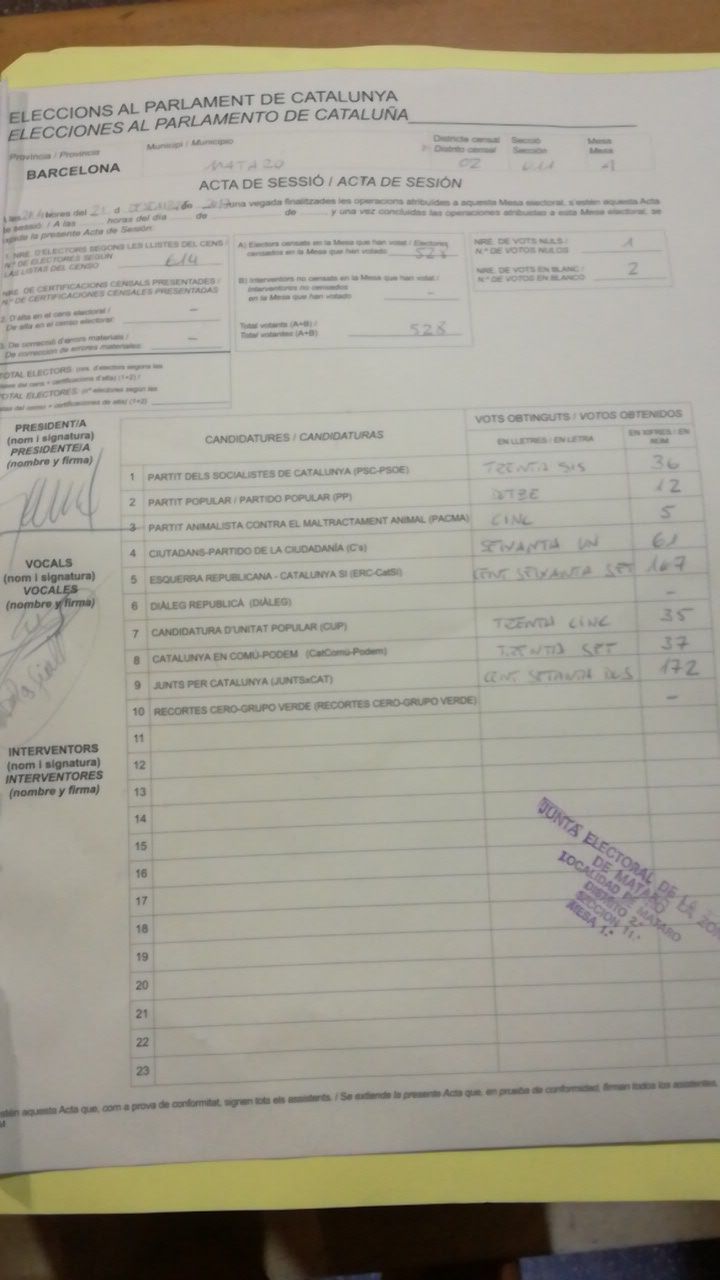 ELECCIONS AL PARLAMENT DE CATALUNYA
ELECCIONES AL PARLAMENTO DE CATALUÑA
Provincia / Provincia
Municipi / Municipio
Districte censal
Distrito censal
Secció
Sección
Mesa
Mesa
BARCELONA
MATARO
02
011
ACTA DE SESSIÓ / ACTA DE SESIÓN
hores del 21 d DESEMBRE de una vegada finalitzades les operacions atribuïdes a aquesta Mesa electoral, s'estén aquesta Acta
de sessió: / A las horas del día de de y una vez concluidas las operaciones atribuidas a esta Mesa electoral, se
la presente Acta de Sesión:
1. NRE. D'ELECTORS SEGONS LES LLISTES DEL CENS /
N.º DE ELECTORES SEGÚN
LAS LISTAS DEL CENSO
614
NRE. DE CERTIFICACIONS CENSALS PRESENTADES /
N.º DE CERTIFICACIONES CENSALES PRESENTADAS
2. D'alta en el cens electoral /
De alta en el censo electoral:
–
3. De correcció d'errors materials /
De corrección de errores materiales:
–
TOTAL ELECTORS: (nre. d'electors segons les
llistes del cens + certificacions d'alta) (1+2) /
TOTAL ELECTORES: (nº electores según las
listas del censo + certificaciones de alta) (1+2)
A) Electors censats en la Mesa que han votat / Electores
censados en la Mesa que han votado
528
B) Interventors no censats en la Mesa que han votat /
Interventores no censados
en la Mesa que han votado
–
Total votants (A+B) /
Total votantes (A+B)
528
NRE. DE VOTS NULS /
N.º DE VOTOS NULOS
1
NRE. DE VOTS EN BLANC /
N.º DE VOTOS EN BLANCO
2
PRESIDENT/A
(nom i signatura)
PRESIDENTE/A
(nombre y firma)
VOCALS
(nom i signatura)
VOCALES
(nombre y firma)
INTERVENTORS
(nom i signatura)
INTERVENTORES
(nombre y firma)
CANDIDATURES / CANDIDATURAS
VOTS OBTINGUTS / VOTOS OBTENIDOS
EN LLETRES / EN LETRA
EN XIFRES / EN
NÚM
1 PARTIT DELS SOCIALISTES DE CATALUNYA (PSC-PSOE) TRENTA SIS 36
2 PARTIT POPULAR / PARTIDO POPULAR (PP) DOTZE 12
3 PARTIT ANIMALISTA CONTRA EL MALTRACTAMENT ANIMAL (PACMA) CINC 5
4 CIUTADANS-PARTIDO DE LA CIUDADANÍA (C's) SEIXANTA UN 61
5 ESQUERRA REPUBLICANA - CATALUNYA SI (ERC-CatSí) CENT SEIXANTA SET 167
6 DIÀLEG REPUBLICÀ (DIÀLEG) –
7 CANDIDATURA D'UNITAT POPULAR (CUP) TRENTA CINC 35
8 CATALUNYA EN COMÚ-PODEM (CatComú-Podem) TRENTA SET 37
9 JUNTS PER CATALUNYA (JUNTSxCAT) CENT SETANTA DOS 172
10 RECORTES CERO-GRUPO VERDE (RECORTES CERO-GRUPO VERDE) –
11
12
13
14
15
16
17
18
19
20
21
22
23
JUNTA ELECTORAL DE LA ZONA
DE MATARO
LOCALIDAD DE MATARO
DISTRITO 2.
SECCION 11.
MESA 1.
estén aquesta Acta que, com a prova de conformitat, signen tots els assistents. / Se extiende la presente Acta que, en prueba de conformidad, firman todos los asistentes.